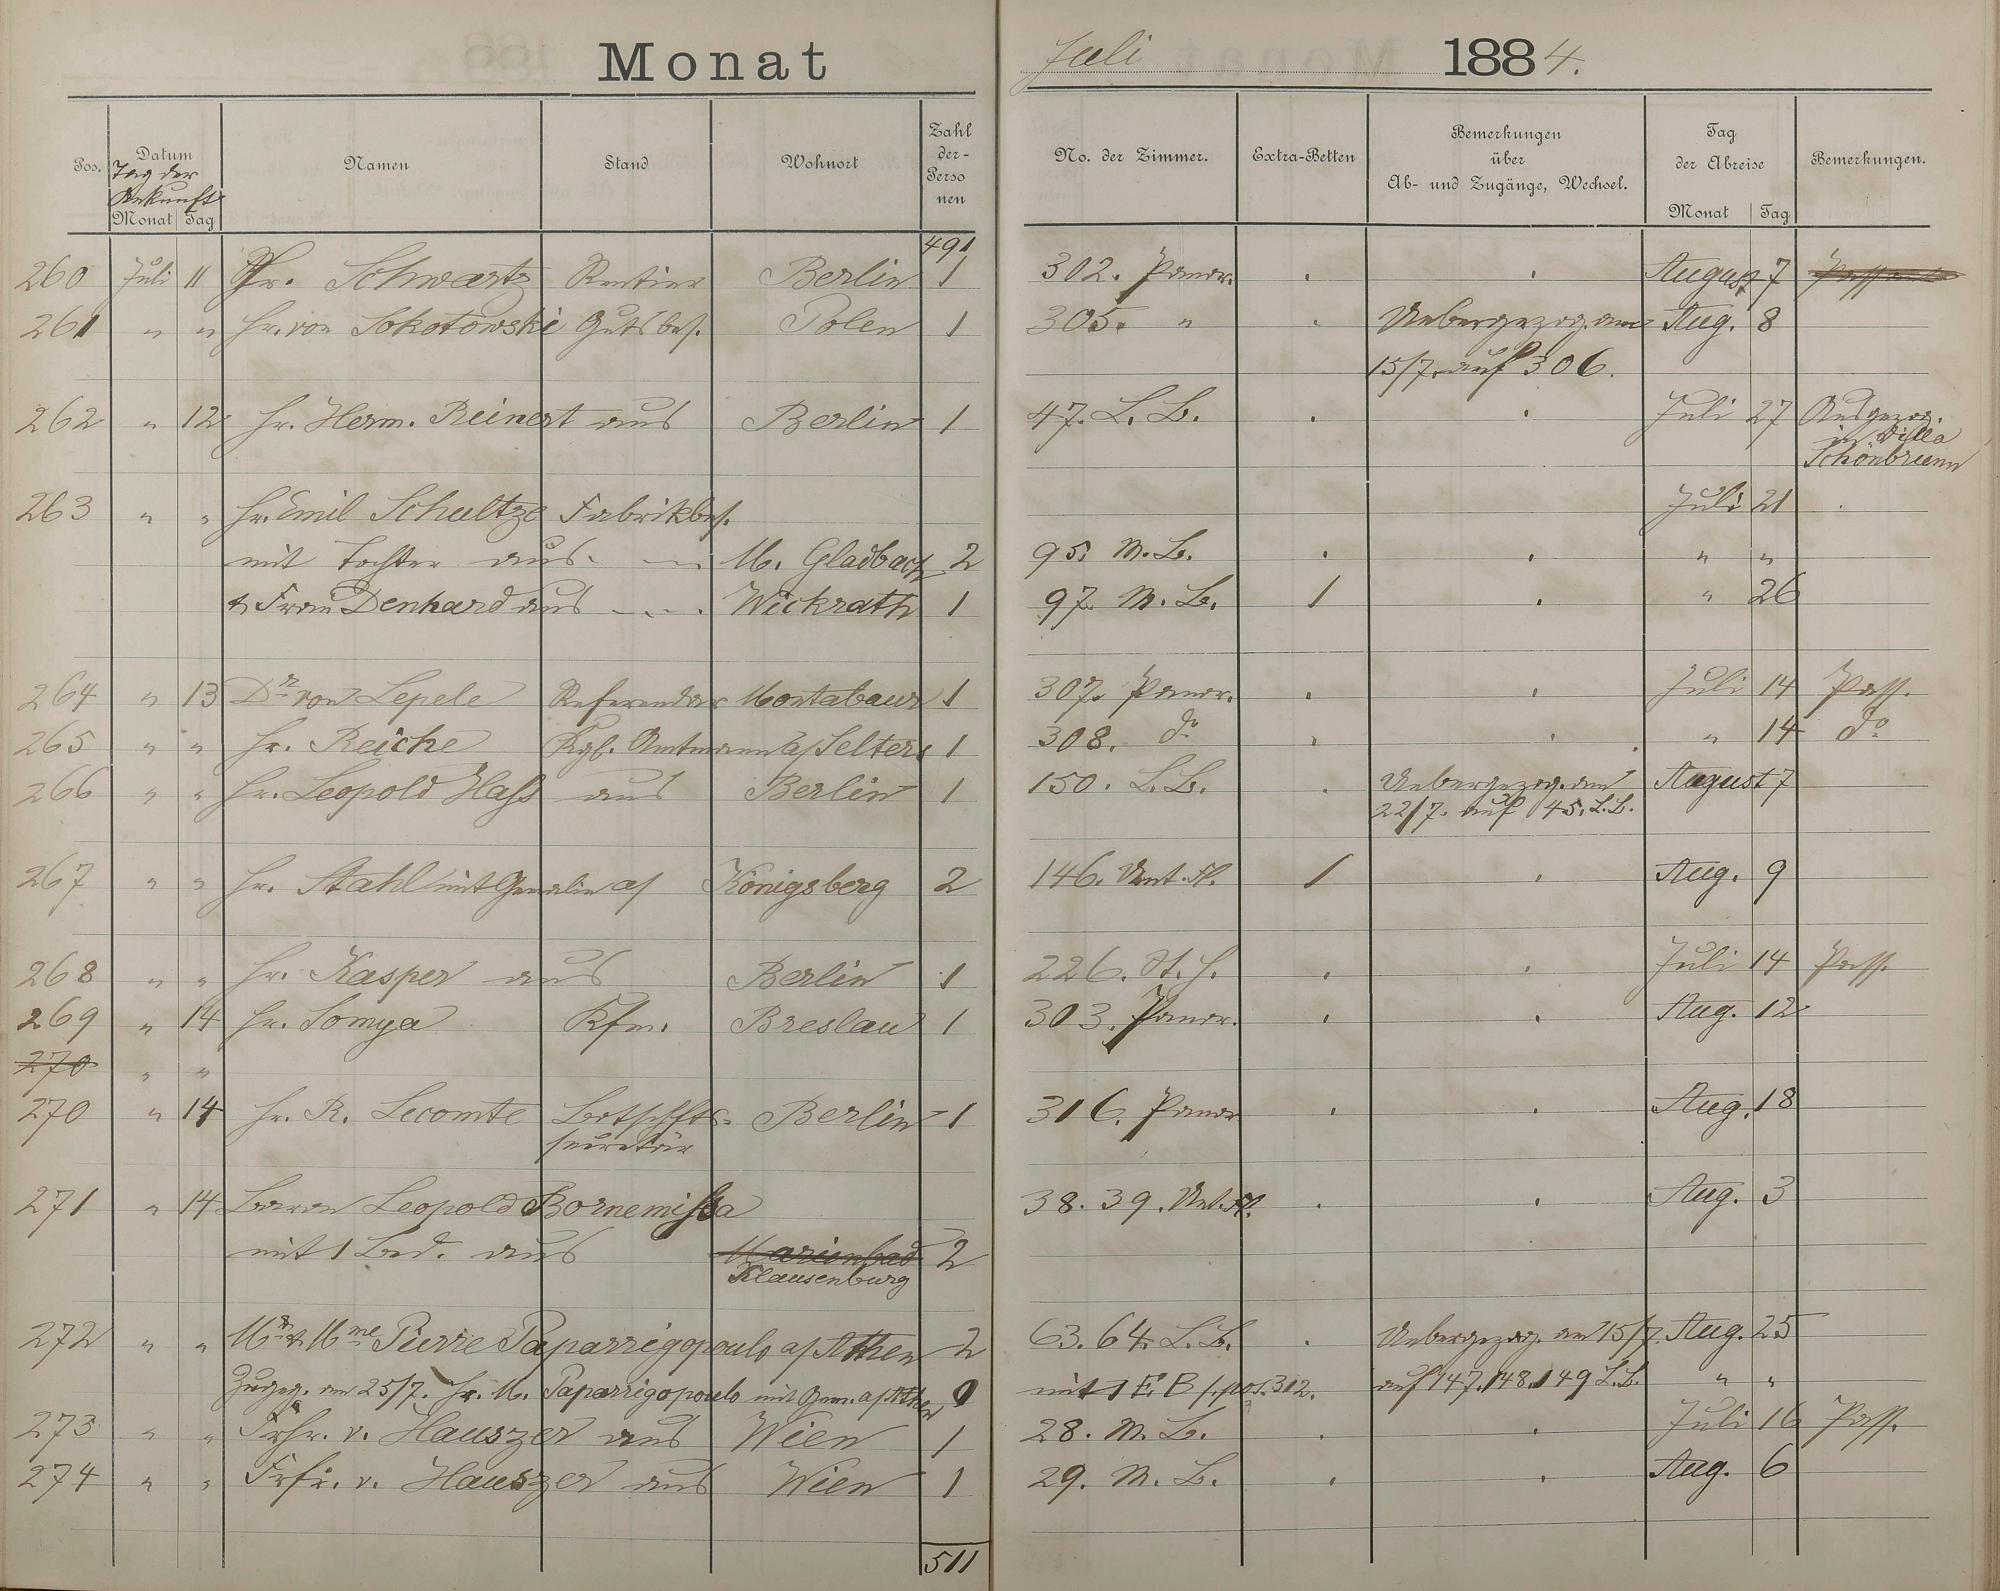 Monat Juli 1884.
Pos. Datum Tag der Ankunft Monat Tag Namen Stand Wohnort Zahl der Personen No. der Zimmer. Extra-Betten Bemerkungen über Ab- und Zugänge, Wechsel. Tag der Abreise Monat Tag Bemerkungen.
491
260 Juli 11 Fr. Schwartz Rentier Berlin 1 302. Panor. August 7
261 " " Hr. von Sokotowski Gutsbes. Polen 1 305. " Uebergezog. am Aug. 8
15/7. auf 306.
262 " 12 Hr. Herm. Reinert aus Berlin 1 47. L. B. Juli 27 Ausgezog.
in Villa
Schönbrunn
263 " " Hr. Emil Schultze Fabrikbes. Juli 21
mit Tochter aus M. Gladbach 2 95. M. B. " "
& Frau Denhard aus Wickrath 1 97. M. B. 1 " 26
264 " 13 Dr von Lepele Referendar Montabaur 1 307. Panor. Juli 14 Pass.
265 " " Hr. Reiche Kgl. Amtmann a/ Selters 1 308. do " 14 do
266 " " Hr. Leopold Hass aus Berlin 1 150. L. B. Uebergezog. am August 7
22/7. auf 45. L. B.
267 " " Hr. Stahl mit Gemalin a/ Königsberg 2 146. Unt. A. 1 Aug. 9
268 " " Hr. Kasper aus Berlin 1 226. St. H. Juli 14 Pass.
269 " 14 Hr. Somya Kfm. Breslau 1 303. Panor. Aug. 12
270 " "
270 " 14 Hr. R. Lecomte Botschfts- Berlin 1 316. Panor Aug. 18
secretär
271 " 14 Baron Leopold Bornemissa 38. 39. Unt. A. Aug. 3
mit 1 Bed. aus Marienbad 2
Klausenburg
272 " " Mr & Mme Pierre Paparrigopoulo a/ Athen 2 63. 64. L. B. Uebergezog. am 15/7. Aug. 25
Zugeg. am 25/7. Hr. M. Paparrigopoulo mit Gem. a/ Athen 0 mit 1 E. B. s. pos. 312. auf 147. 148. 149 L. B. " "
273 " " Frhr. v. Hauszer aus Wien 1 28. M. B. Juli 16 Pass.
274 " " Frfr. v. Hauszer aus Wien 1 29. M. B. Aug. 6
511